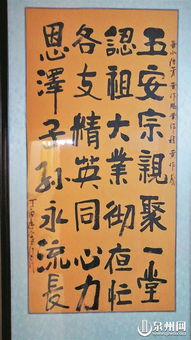 五安宗親聚一堂
認祖大業彻夜忙
各支精英同心力
恩澤子孫永流長
泉州网